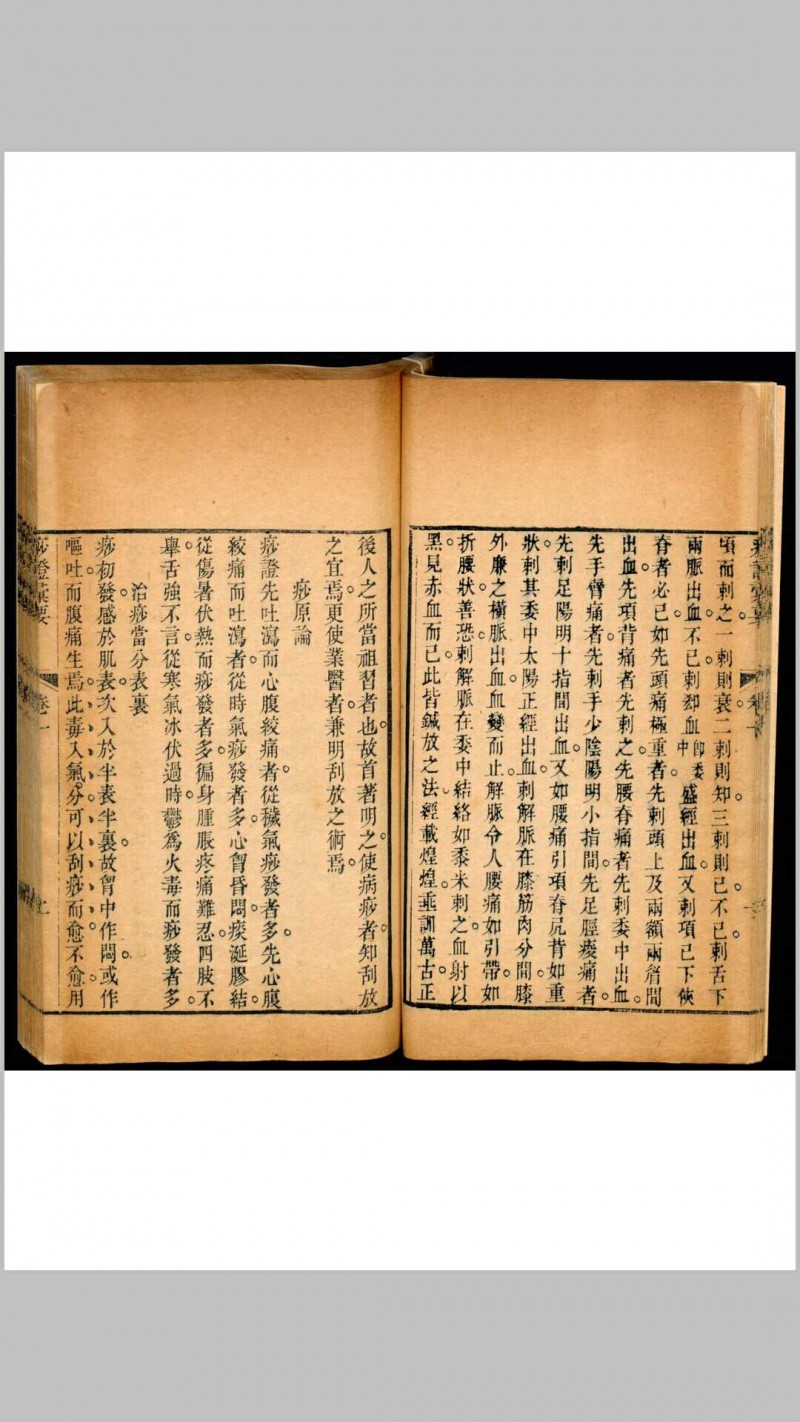 頃而刺之一刺則衰二刺則知三刺則已不已刺舌下
兩脈出血不已刺郄中卽委中盛經出血又刺項已下俠
脊者必已如先頭痛極重者先刺頭上及兩額兩眉間
出血先項背痛者先刺之先腰脊痛者先刺委中出血
先手臂痛者先刺手少陰陽明小指間先足脛痠痛者
先刺足陽明十指間出血又如腰痛引項脊尻背如重
狀刺其委中太陽正經出血刺解脈在膝筋肉分間膝
外廉之橫脈出血血變而止解脈令人腰痛如引帶如
折腰狀善恐刺解脈在委中結絡如黍米刺之血射以
黑見赤血而已此皆鍼放之法經載煌煌垂訓萬古正
後人之所當祖習者也故首著明之使病痧者知刮放
之宜焉更使業醫者兼明刮放之術焉
痧原論
痧證先吐瀉而心腹絞痛者從穢氣痧發者多先心腹
絞痛而吐瀉者從時氣痧發者多心胷昏悶痰涎膠結
從傷暑伏熱而痧發者多徧身腫脹疼痛難忍四肢不
舉舌強不言從寒氣冰伏過時鬱為火毒而痧發者多
治痧當分表裏
痧初發感於肌表次入於半表半裏故胷中作悶或作
嘔吐而腹痛生焉此毒入氣分可以刮痧而愈不愈用
痧證彙要 卷一